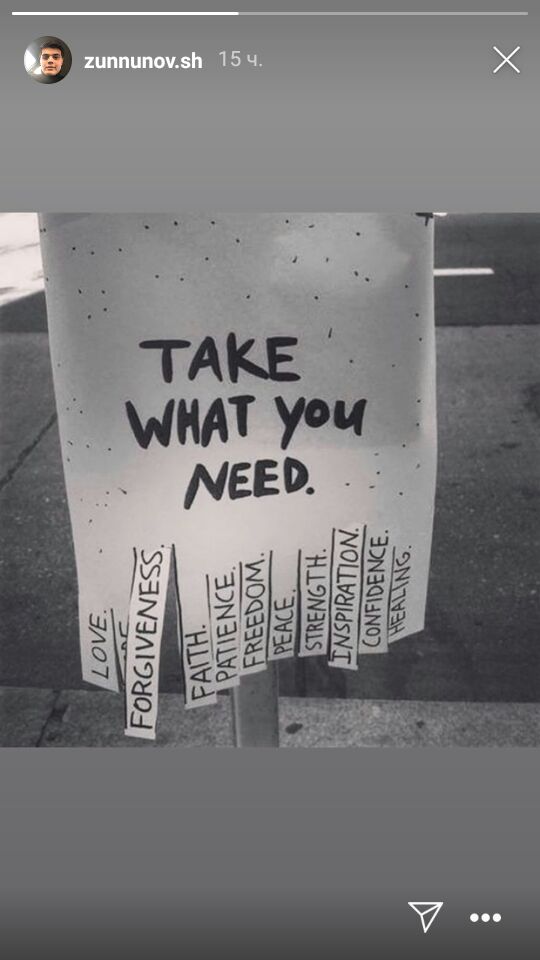 zunnunov.sh 15 ч.
TAKE
WHAT YOU
NEED.
LOVE.
FORGIVENESS.
FAITH.
PATIENCE.
FREEDOM.
PEACE.
STRENGTH.
INSPIRATION.
CONFIDENCE.
HEALING.